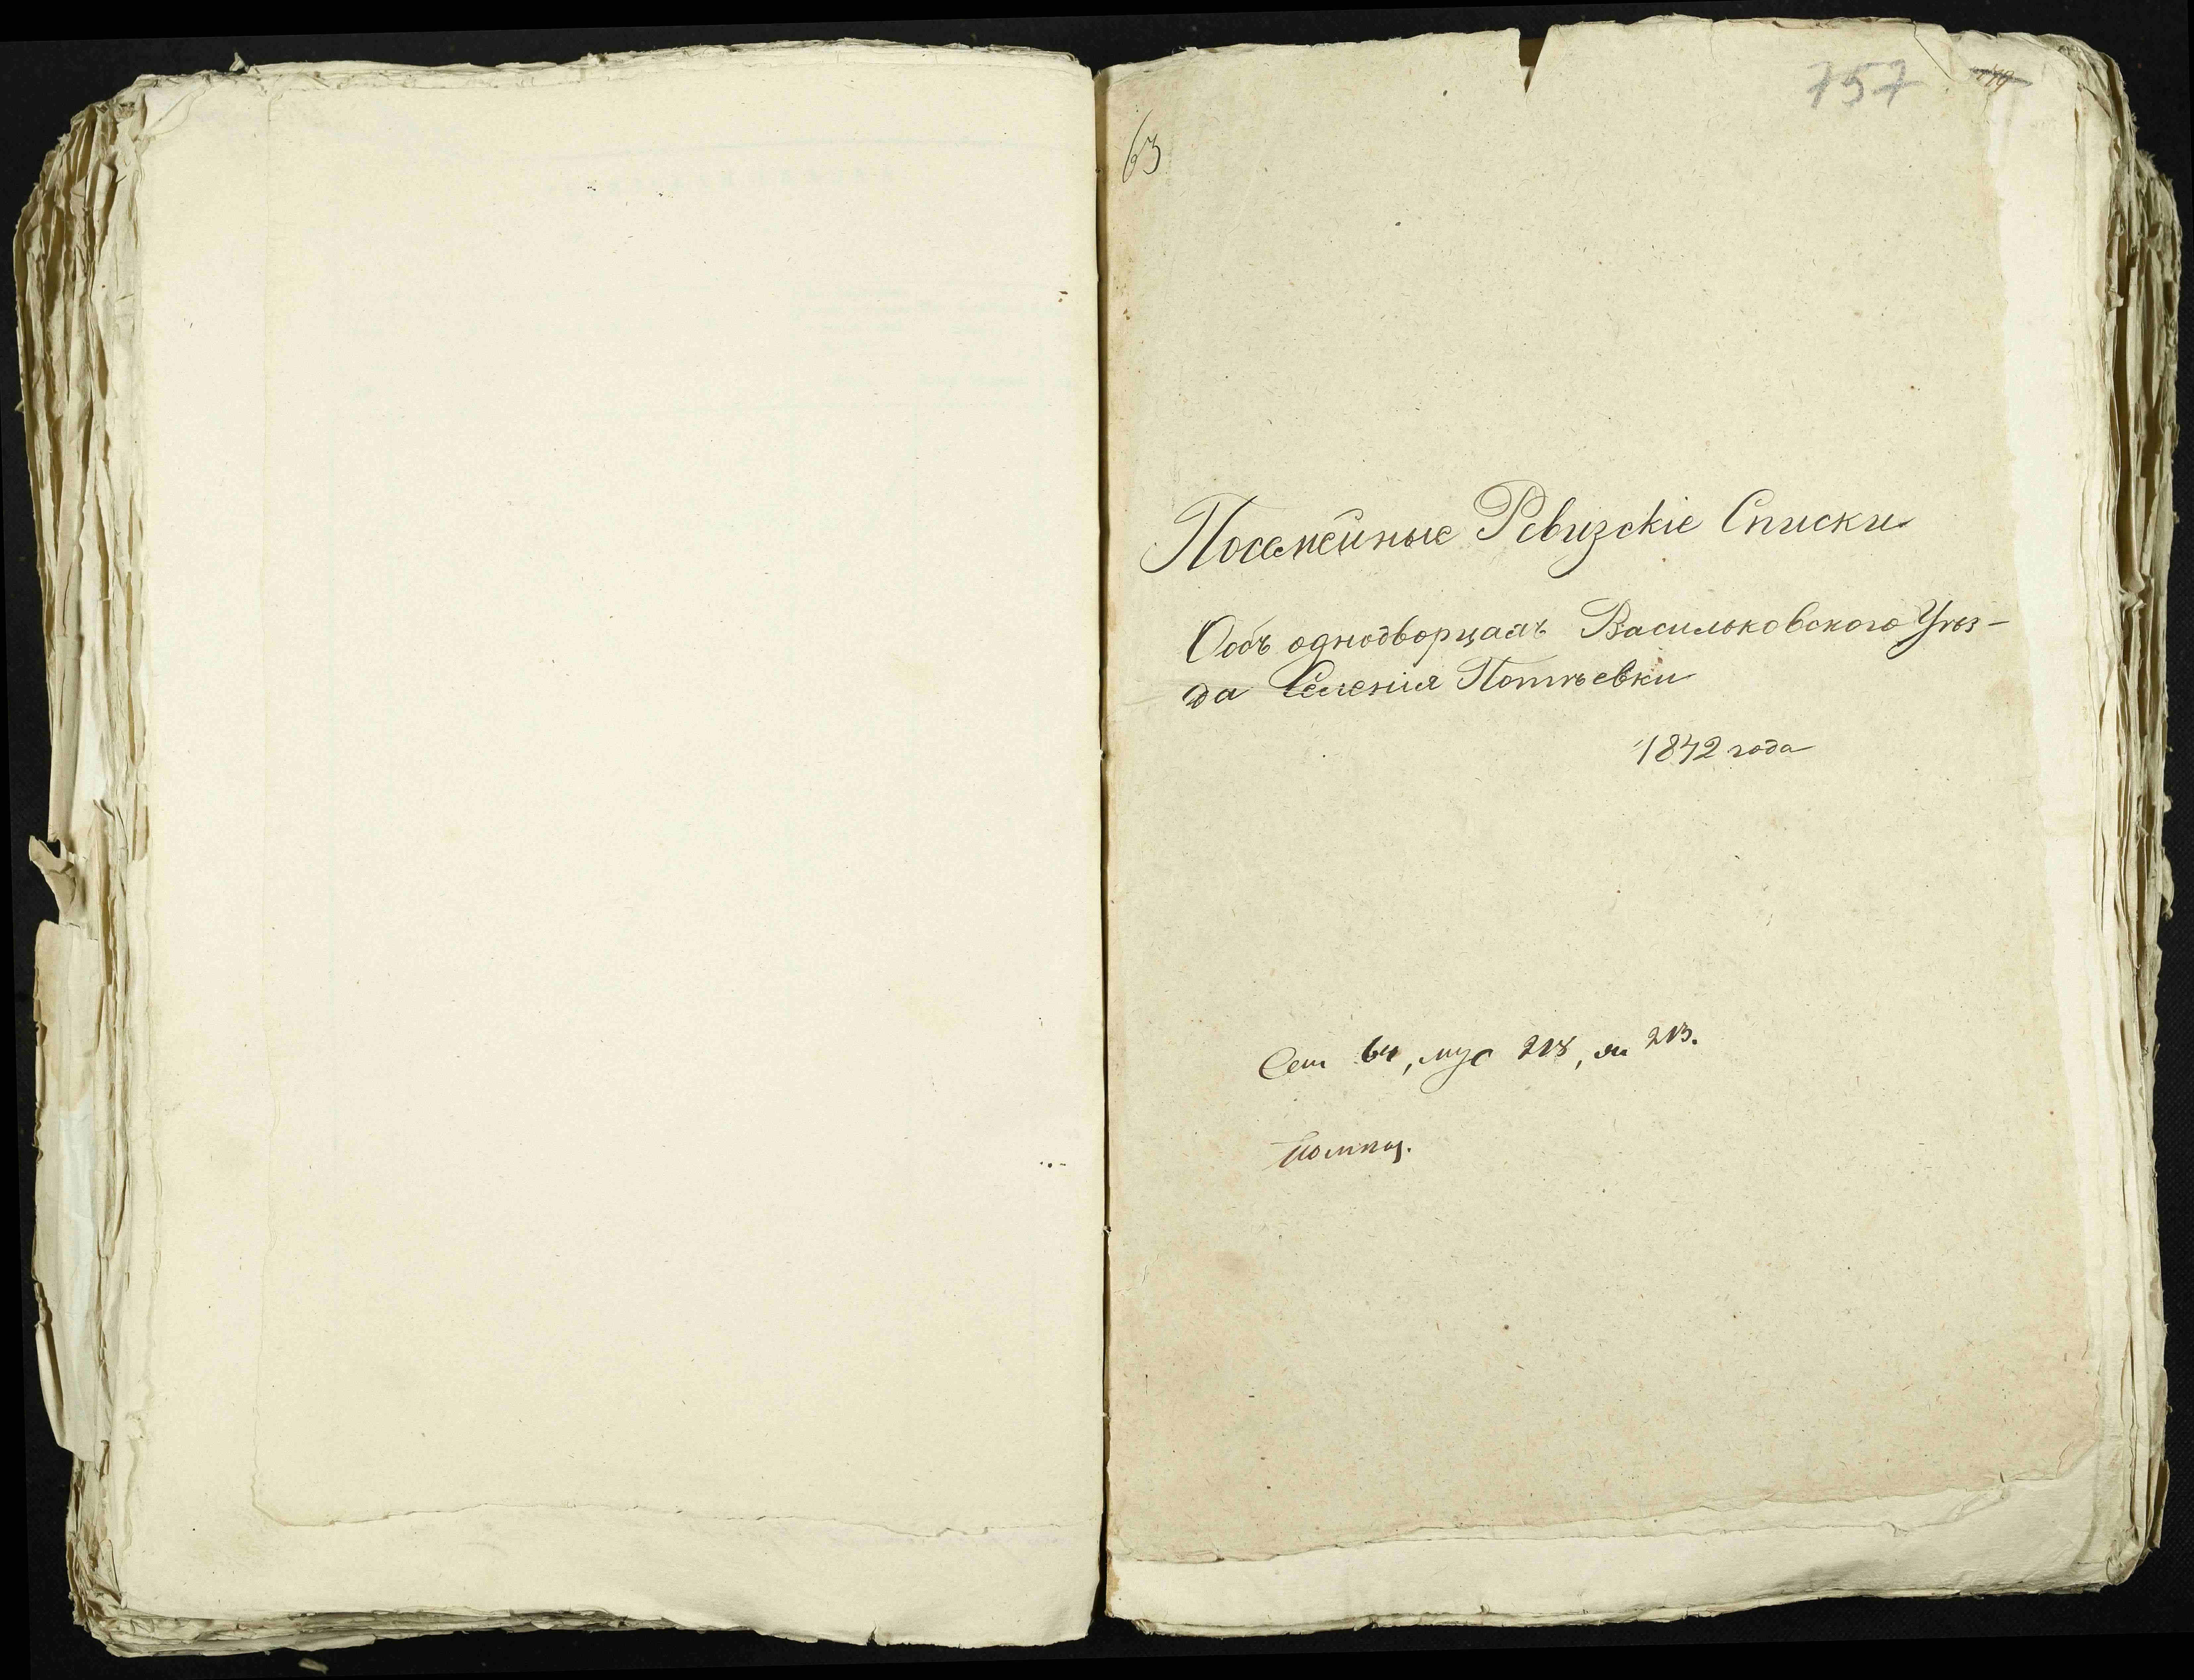 757
63
Посемейные Ревизскіе Списки
Объ однодворцахъ Васильковскаго Уѣз-
да Селенія Потѣевки
1842 года
Сем 64, муж 218, ж 213.